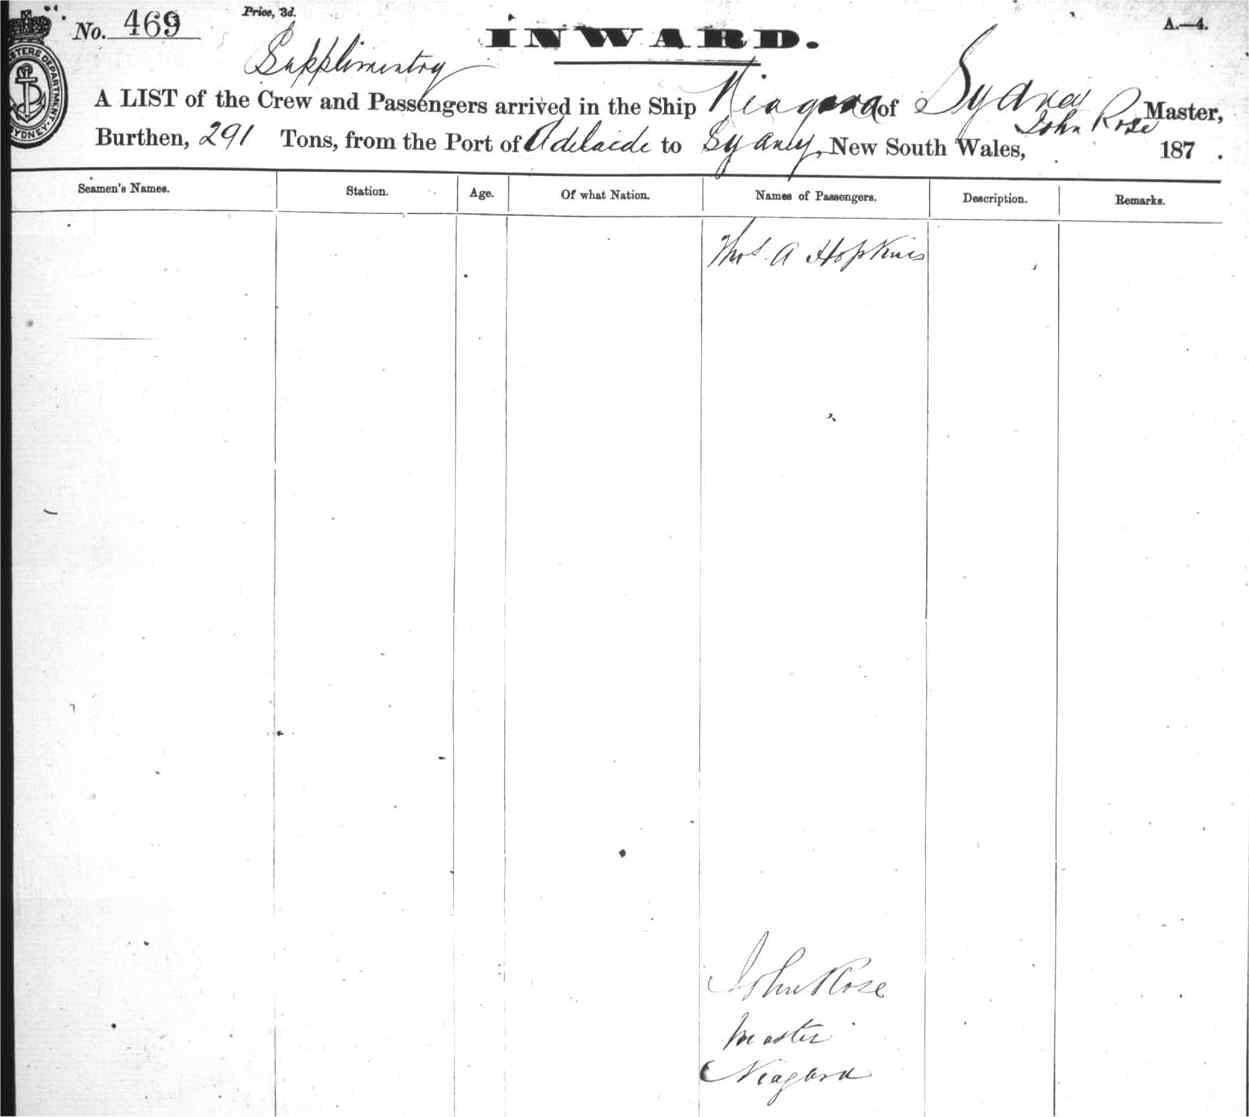 No. 469 Price, 3d. INWARD. A.—4.
Supplimentry
A LIST of the Crew and Passengers arrived in the Ship Niagara of Sydney John Rose Master,
Burthen, 291 Tons, from the Port of Adelaide to Sydney, New South Wales, 187 .
Seamen's Names. Station. Age. Of what Nation. Names of Passengers. Description. Remarks.
Thos. A Hopkins
John Rose
Master
Niagara